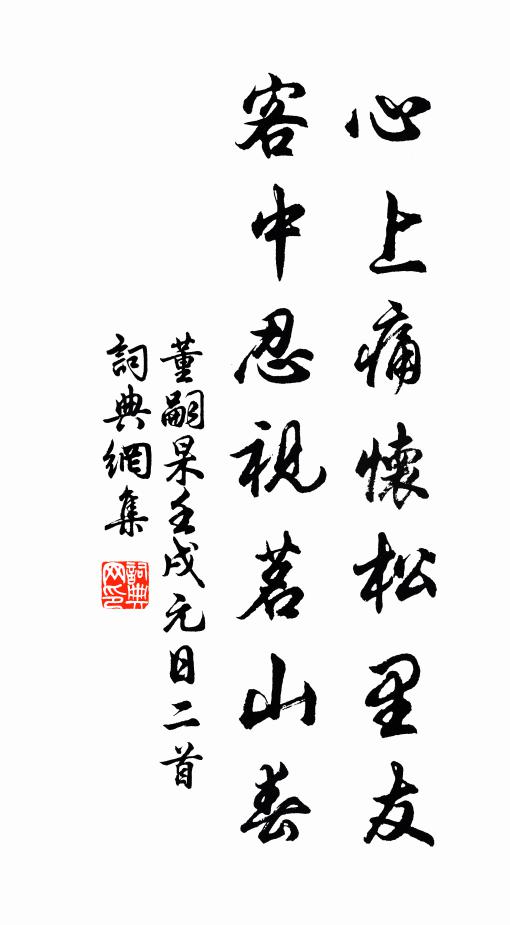 心上痛懷松里友
客中忍視茗山春
董嗣杲壬戌元日二首
詞典網集
詞典网印